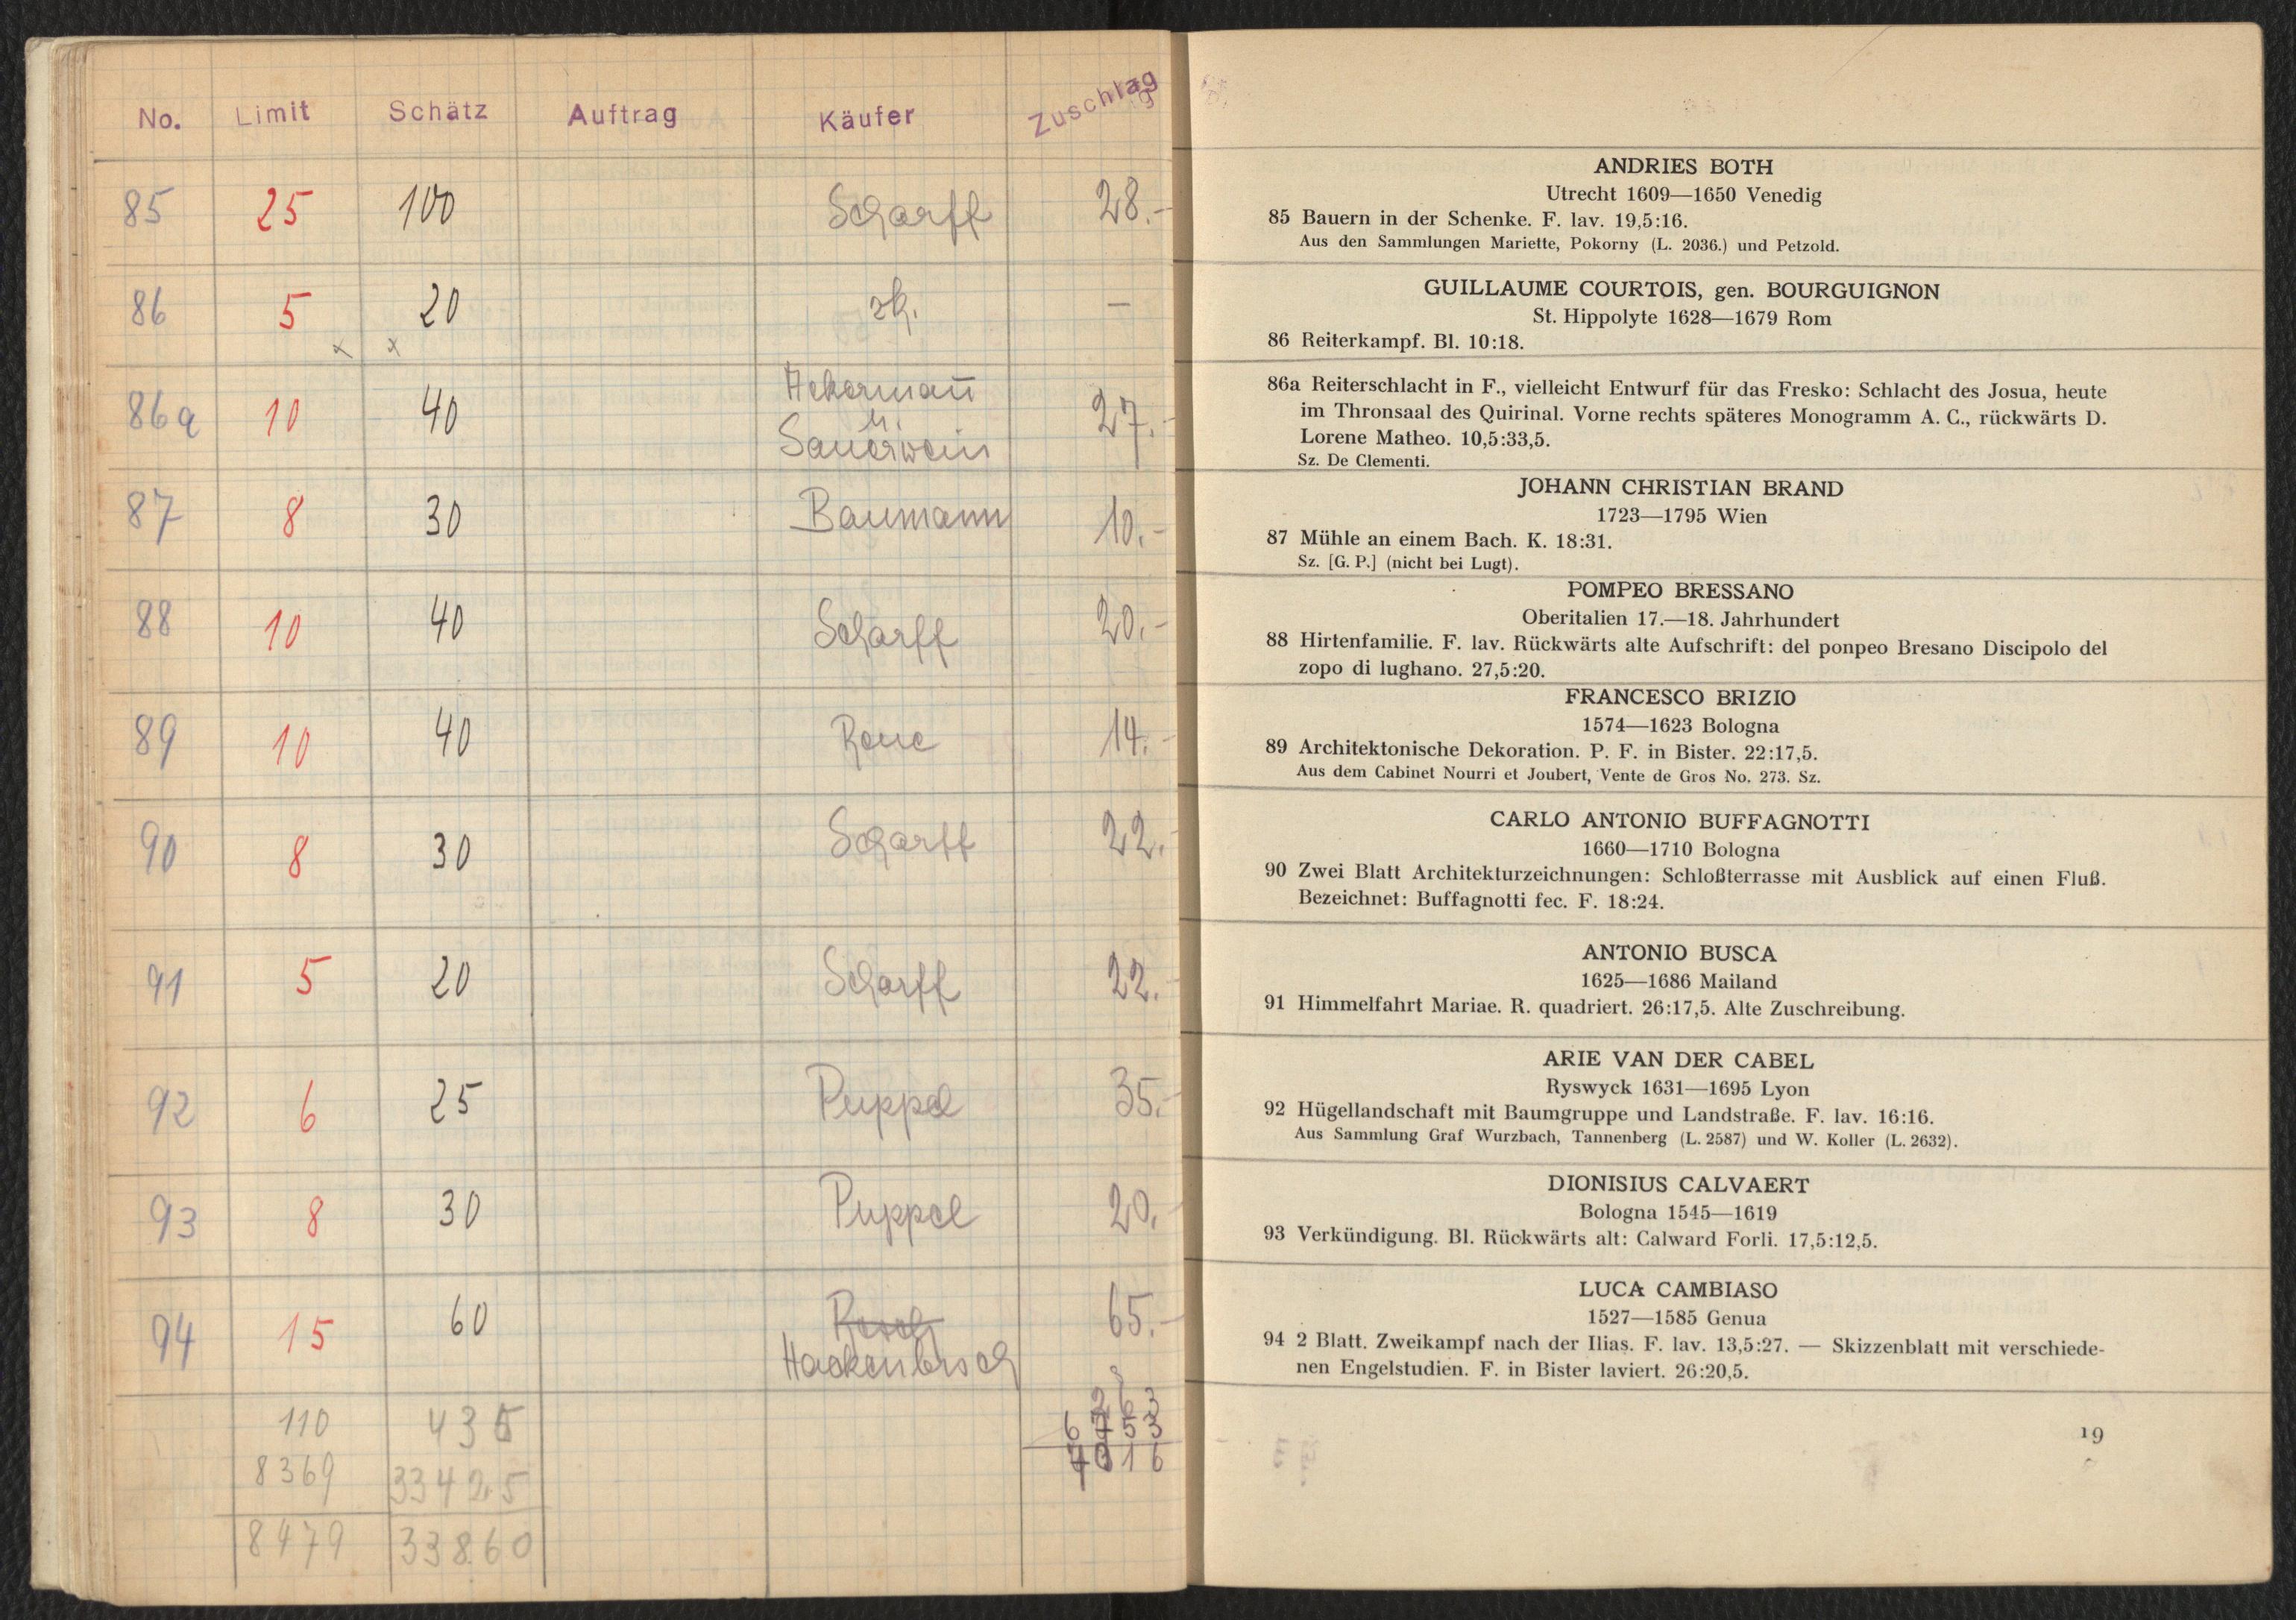 No. Limit Schätz Auftrag Käufer Zuschlag
85 25 100 Scharff 28.-
86 5 20 zk. —
x x
86a 10 40 Ackermañ u. Sauerwein 27.-
87 8 30 Baumann 10.-
88 10 40 Scharff 20.-
89 10 40 14.-
90 8 30 Scharff 22.-
91 5 20 Scharff 22.
92 6 25 Puppel 35.-
93 8 30 Puppel 20.
94 15 60 65.-
Hackenbroch
110 435 263
8369 33425 6753
8479 33860 7016
ANDRIES BOTH
Utrecht 1609—1650 Venedig
85 Bauern in der Schenke. F. lav. 19,5:16.
Aus den Sammlungen Mariette, Pokorny (L. 2036.) und Petzold.
GUILLAUME COURTOIS, gen. BOURGUIGNON
St. Hippolyte 1628—1679 Rom
86 Reiterkampf. Bl. 10:18.
86a Reiterschlacht in F., vielleicht Entwurf für das Fresko: Schlacht des Josua, heute
im Thronsaal des Quirinal. Vorne rechts späteres Monogramm A. C., rückwärts D.
Lorene Matheo. 10,5:33,5.
Sz. De Clementi.
JOHANN CHRISTIAN BRAND
1723—1795 Wien
87 Mühle an einem Bach. K. 18:31.
Sz. [G. P.] (nicht bei Lugt).
POMPEO BRESSANO
Oberitalien 17.—18. Jahrhundert
88 Hirtenfamilie. F. lav. Rückwärts alte Aufschrift: del ponpeo Bresano Discipolo del
zopo di lughano. 27,5:20.
FRANCESCO BRIZIO
1574—1623 Bologna
89 Architektonische Dekoration. P. F. in Bister. 22:17,5.
Aus dem Cabinet Nourri et Joubert, Vente de Gros No. 273. Sz.
CARLO ANTONIO BUFFAGNOTTI
1660—1710 Bologna
90 Zwei Blatt Architekturzeichnungen: Schloßterrasse mit Ausblick auf einen Fluß.
Bezeichnet: Buffagnotti fec. F. 18:24.
ANTONIO BUSCA
1625—1686 Mailand
91 Himmelfahrt Mariae. R. quadriert. 26:17,5. Alte Zuschreibung.
ARIE VAN DER CABEL
Ryswyck 1631—1695 Lyon
92 Hügellandschaft mit Baumgruppe und Landstraße. F. lav. 16:16.
Aus Sammlung Graf Wurzbach, Tannenberg (L. 2587) und W. Koller (L. 2632).
DIONISIUS CALVAERT
Bologna 1545—1619
93 Verkündigung. Bl. Rückwärts alt: Calward Forli. 17,5:12,5.
LUCA CAMBIASO
1527—1585 Genua
94 2 Blatt. Zweikampf nach der Ilias. F. lav. 13,5:27. — Skizzenblatt mit verschiede-
nen Engelstudien. F. in Bister laviert. 26:20,5.
19